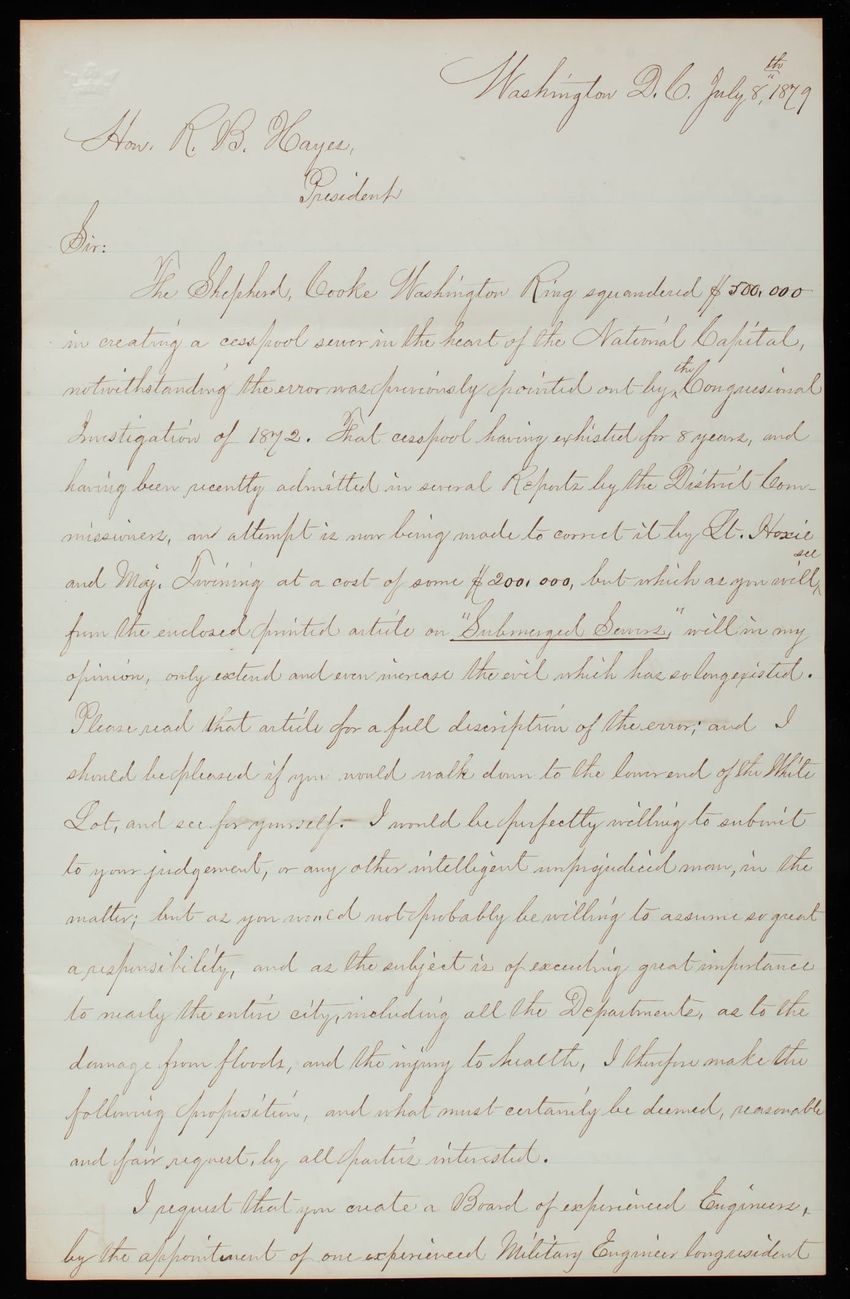 Washington D.C. July 8,th 1879
Hon. R. B. Hayes,
President
Sir:
The Shepherd, Cooke Washington Ring squandered $500,000
in creating a cesspool sewer in the heart of the National Capital,
notwithstanding the error was previously pointed out by the Congressional
Investigation of 1872. That cesspool having exhisted for 8 years, and
having been recently admitted in several Reports by the District Com-
missioners, an attempt is now being made to correct it by Lt. Hoxie
and Maj. Twining at a cost of some $200,000, but which as you will see
from the enclosed printed article on "Submerged Sewers," will in my
opinion, only extend and even increase the evil which has so long existed.
Please read that article for a full discription of the error; and I
should be pleased if you would walk down to the lower end of the White
Lot, and see for yourself. I would be perfectly willing to submit
to your judgement, or any other intelligent unprejudiced man, in the
matter; but as you would not probably be willing to assume so great
a responsibility, and as the subject is of exceeding great importance
to nearly the entire city, including all the Departments, as to the
damage from floods, and the injury to health, I therefore make the
following proposition, and what must certainly be deemed, reasonable
and fair request, by all parties interested.
I request that you create a Board of experienced Engineers,
by the appointment of one experienced Military Engineer long resident